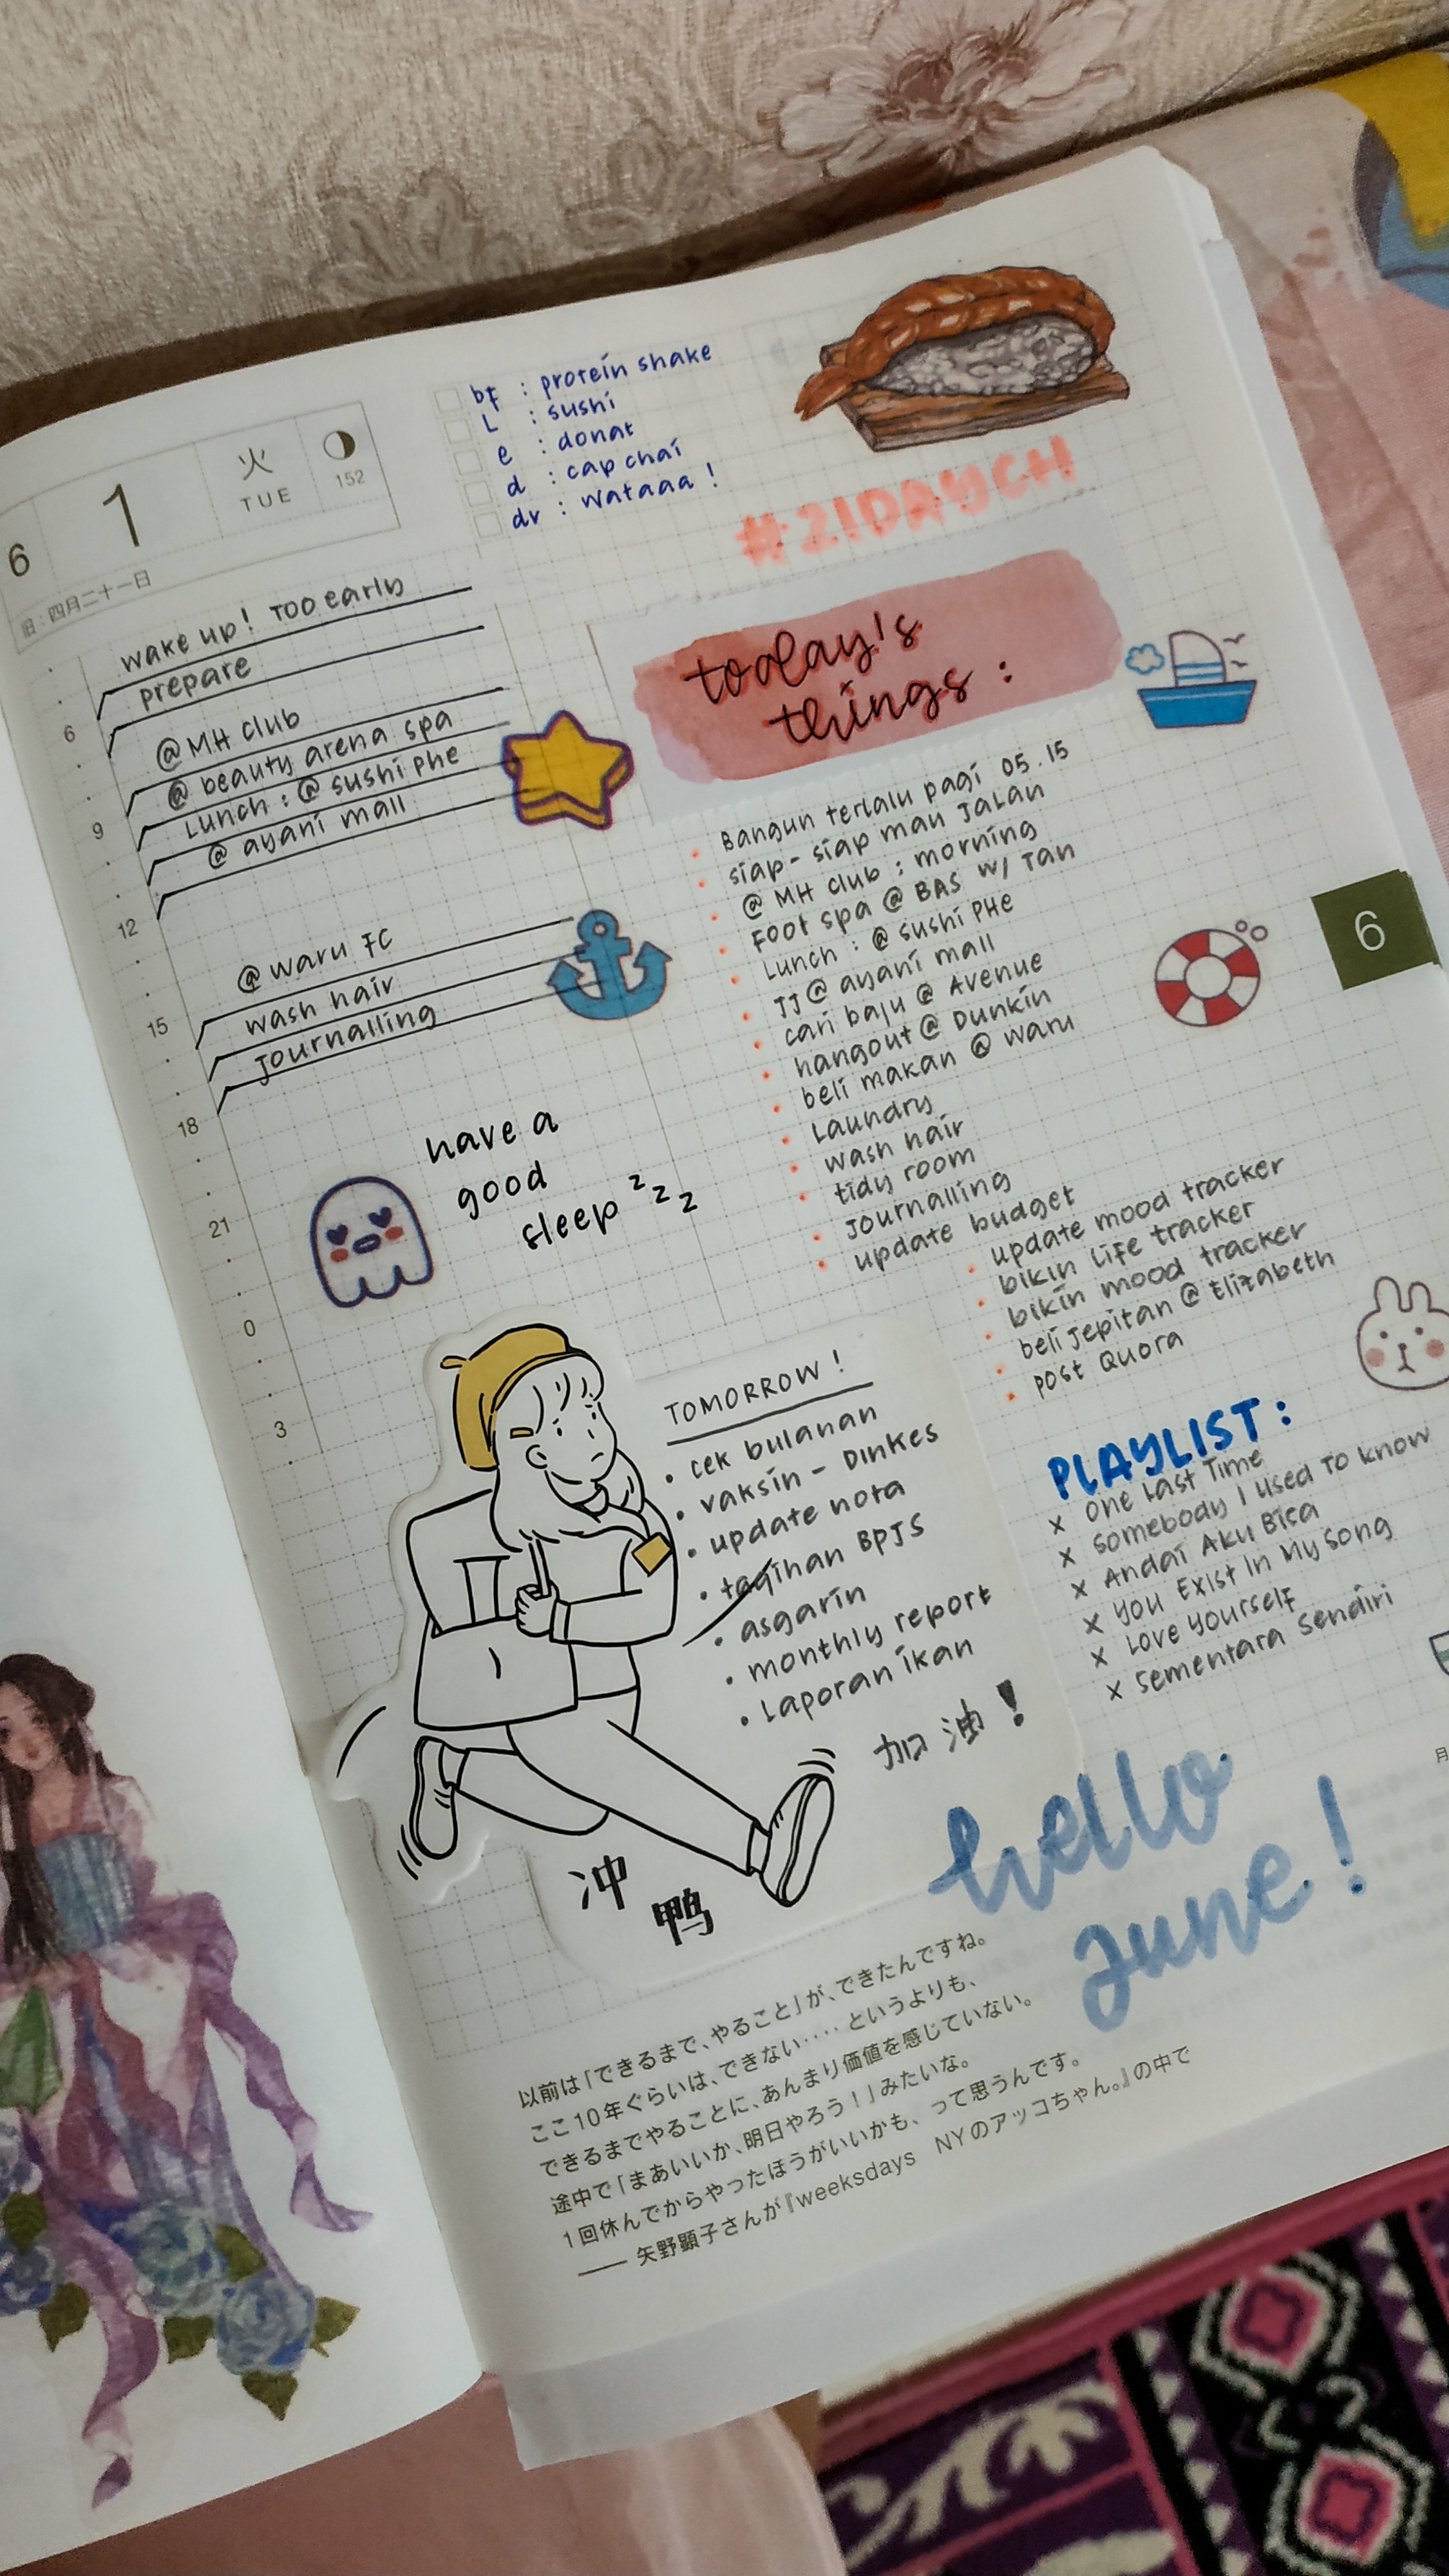 6
1
火
TUE
152
旧:四月二十一日
bf : protein shake
L : sushi
e : donat
d : cap chai
dr : wataaa !
#21DAYCH
wake up! Too early
prepare
@ MH Club
@ beauty arena spa
Lunch : @ sushi Phe
@ ayani mall
@ waru FC
wash hair
Journalling
6
9
12
15
18
21
0
3
have a
good
sleep z z z
today's
things :
Bangun terlalu pagi 05.15
siap-siap mau Jalan
@ MH Club : morning
Foot spa @ BAS w/ Tan
Lunch : @ sushi PHe
JJ @ ayani mall
cari baju @ Avenue
hangout @ Dunkin
beli makan @ waru
Laundry
wash hair
tidy room
Journalling
update budget
update mood tracker
bikin life tracker
bikin mood tracker
beli Jepitan @ Elizabeth
post Quora
6
TOMORROW !
• cek bulanan
• vaksin - Dinkes
• update nota
• tagihan BPJS
• asgarin
• monthly report
• Laporan ikan
加油!
冲
鸭
PLAYLIST :
x One Last Time
x Somebody I Used To Know
x Andai Aku Bisa
x You Exist In My Song
x Love Yourself
x Sementara Sendiri
hello
June !
月
以前は「できるまで、やること」が、できたんですね。
ここ10年ぐらいは、できない‥‥というよりも、
できるまでやることに、あんまり価値を感じていない。
途中で「まあいいか、明日やろう!」みたいな。
1回休んでからやったほうがいいかも、って思うんです。
—— 矢野顕子さんが『weeksdays NYのアッコちゃん。』の中で